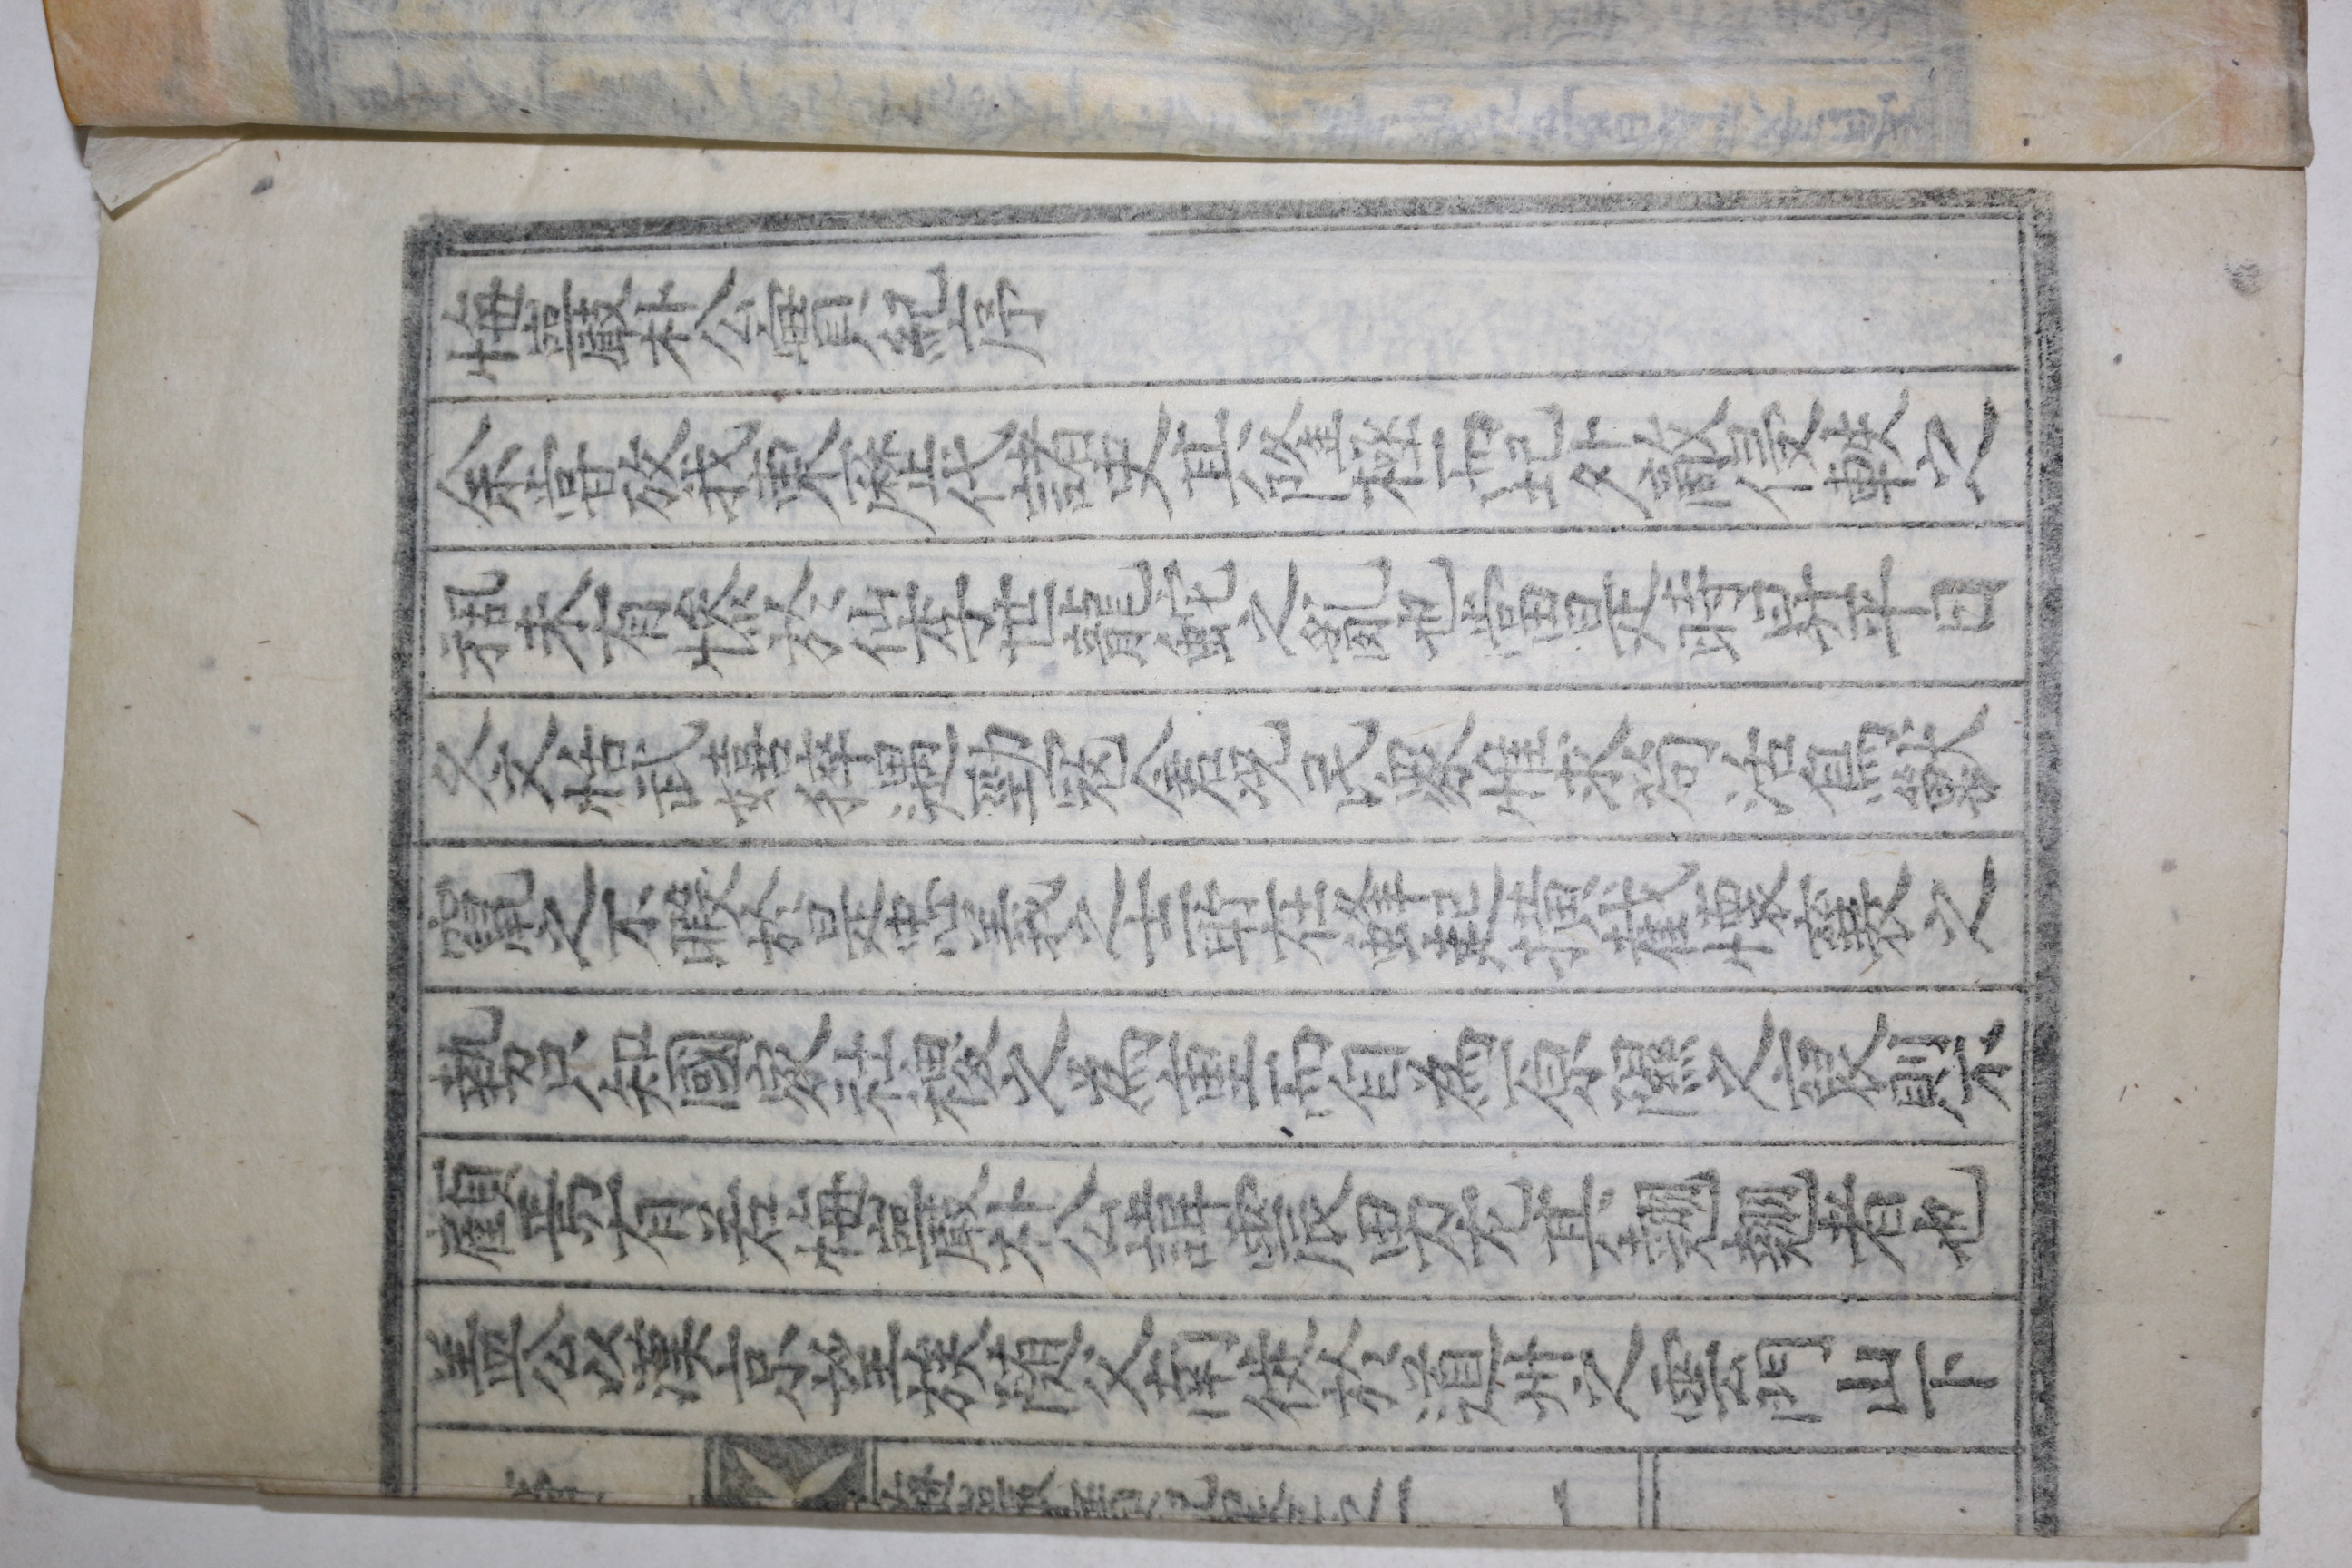 悔巖朴公實紀序
余嘗攷我東歷代諸史其隆極而圮外敵侵軼之
禍未有慘於仙李世龍蛇之亂也當是時昇平日
久文恬武嬉猝遇勁寇倉況民衆惟求苟活鳥獸
竄之不暇於是忠義之士所在蜂起撗截懷襄之
勢只知國家社稷之為重而自為原隰之裒則不
顧焉有若悔巖朴公諱震男尤其翹翹者也
盖公以漢京望族随父南徙於道州之雲門山下
序
悔巖實紀卷之一
一